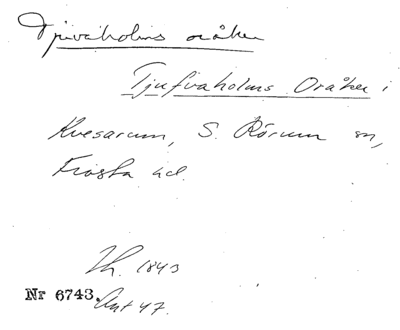 Tjuvaholms oråker
Tjufvaholms Oråker i
Kvesarum, S. Rörum sn,
Frosta hd.
Th. 1843
Nr 6743. Ant 47.